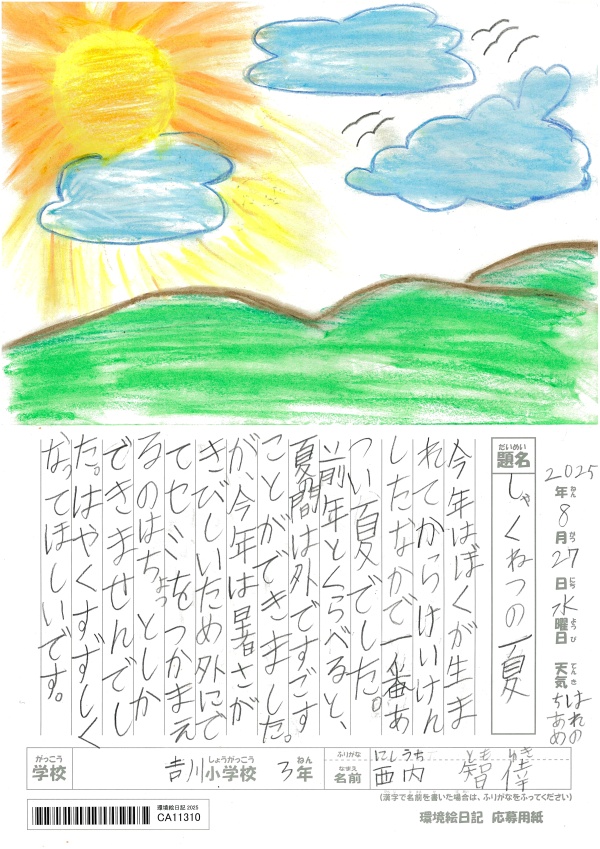 2025年8月27日水曜日 天気はれのちあめ
ねん がつ にち ようび てんき
だいめい
題名 しゃくねつの夏
今年はぼくが生ま
れてからけいけん
したなかで一番あ
つい夏でした。
前年とくらべると、
夏間は外ですごす
ことができました。
が今年は暑さが
きびしいため外にで
てセミをつかまえ
るのはちょっとしか
できませんでし
た。はやくすずしく
なってほしいです。
がっこう しょうがっこう ねん
学校 吉川小学校 3年
ふりがな にしうち ともゆき
なまえ
名前 西内 智倖
(漢字で名前を書いた場合は、ふりがなをふってください)
環境絵日記2025
CA11310
環境絵日記 応募用紙